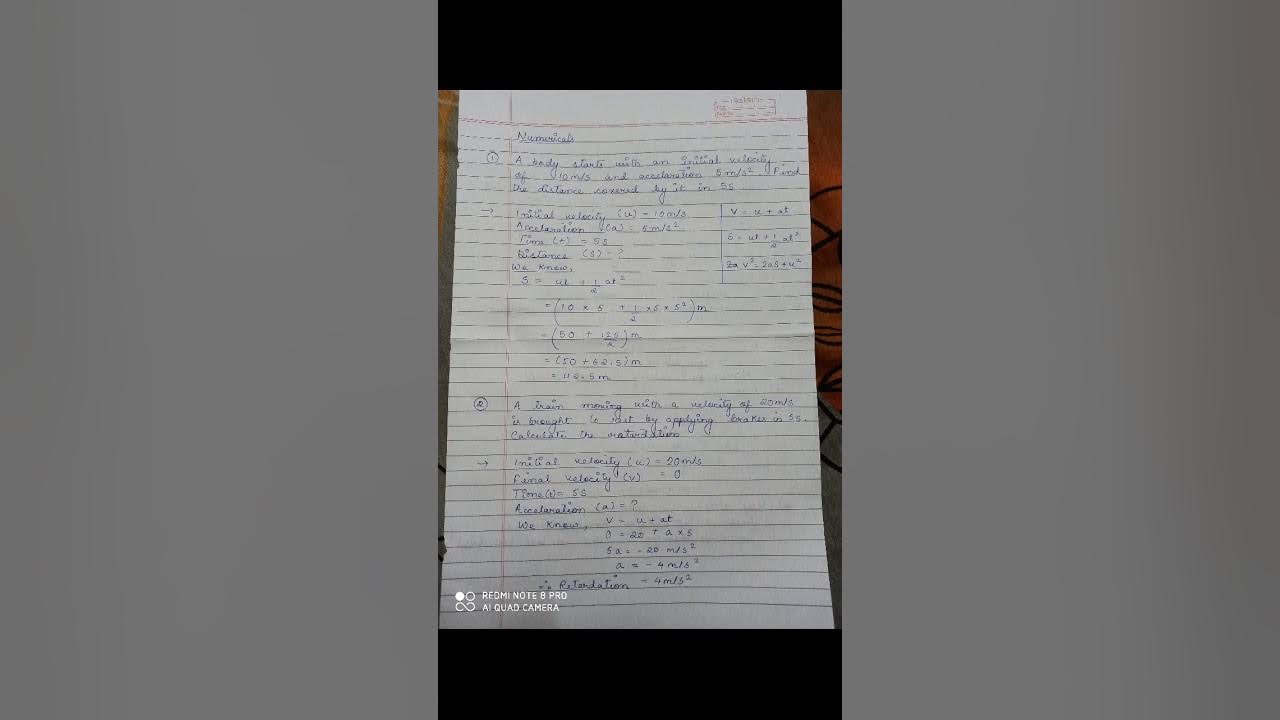 Numericals
① A body starts with an initial velocity
of 10m/s and accelaration 5m/s². Find
the distance covered by it in 5s
→ Initial velocity (u) = 10m/s
Accelaration (a) = 5m/s²
Time (t) = 5s
Distance (S) = ?
We know,
S = ut + 1/2 at²
= (10 × 5 + 1/2 × 5 × 5²) m
= (50 + 125/2) m
= (50 + 62.5) m
= 112.5 m
V = u + at
S = ut + 1/2 at²
V² = 2aS + u²
② A train moving with a velocity of 20m/s
is brought to rest by applying brakes in 5s.
Calculate the retardation
→ Initial velocity (u) = 20m/s
Final velocity (v) = 0
Time(t) = 5s
Accelaration (a) = ?
We know, V = u + at
0 = 20 + a × 5
5a = -20 m/s²
a = -4m/s²
∴ Retardation = 4m/s²
REDMI NOTE 8 PRO
AI QUAD CAMERA